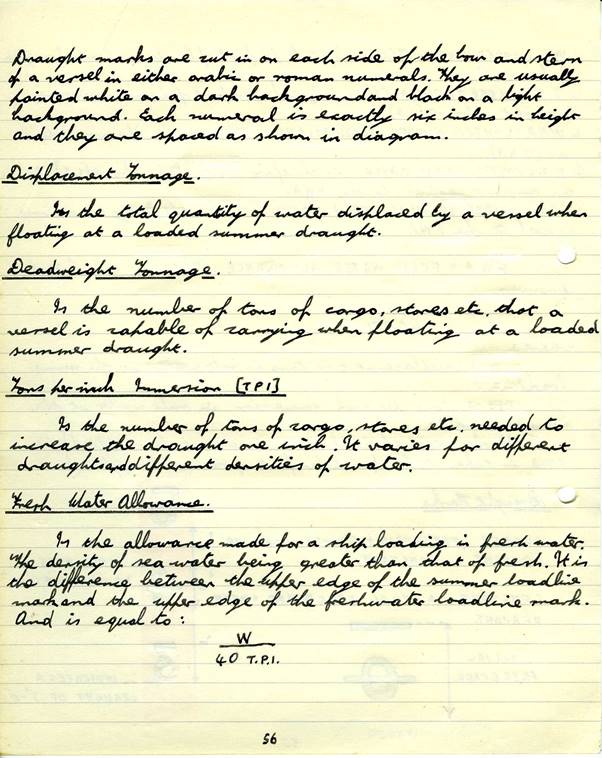 Draught marks are cut in on each side of the bow and stern
of a vessel in either arabic or roman numerals. They are usually
painted white on a dark background and black on a light
background. Each numeral is exactly six inches in height
and they are spaced as shown in diagram.
Displacement Tonnage.
Is the total quantity of water displaced by a vessel when
floating at a loaded summer draught.
Deadweight Tonnage.
Is the number of tons of cargo, stores etc, that a
vessel is capable of carrying when floating at a loaded
summer draught.
Tons per inch Immersion [T.P.I]
Is the number of tons of cargo, stores etc. needed to
increase the draught one inch. It varies for different
draughts and different densities of water.
Fresh Water Allowance.
Is the allowance made for a ship loading in fresh water.
The density of sea water being greater than that of fresh. It is
the difference between the upper edge of the summer loadlie
mark and the upper edge of the freshwater loadline mark.
And is equal to:
W
40 T.P.I.
56